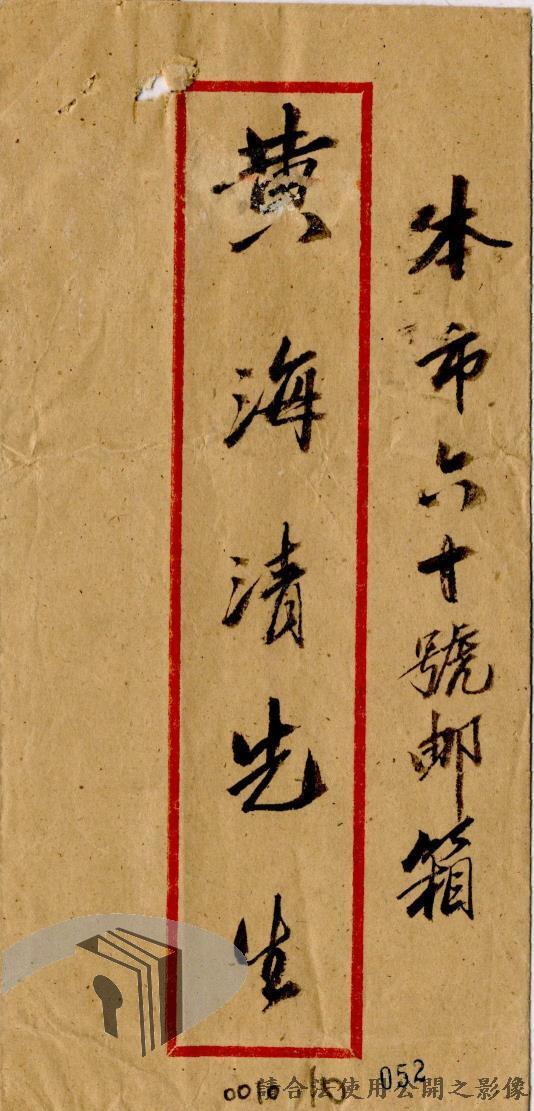 本市六十號邮箱
黄海清先生
052
請合法使用公開之影像